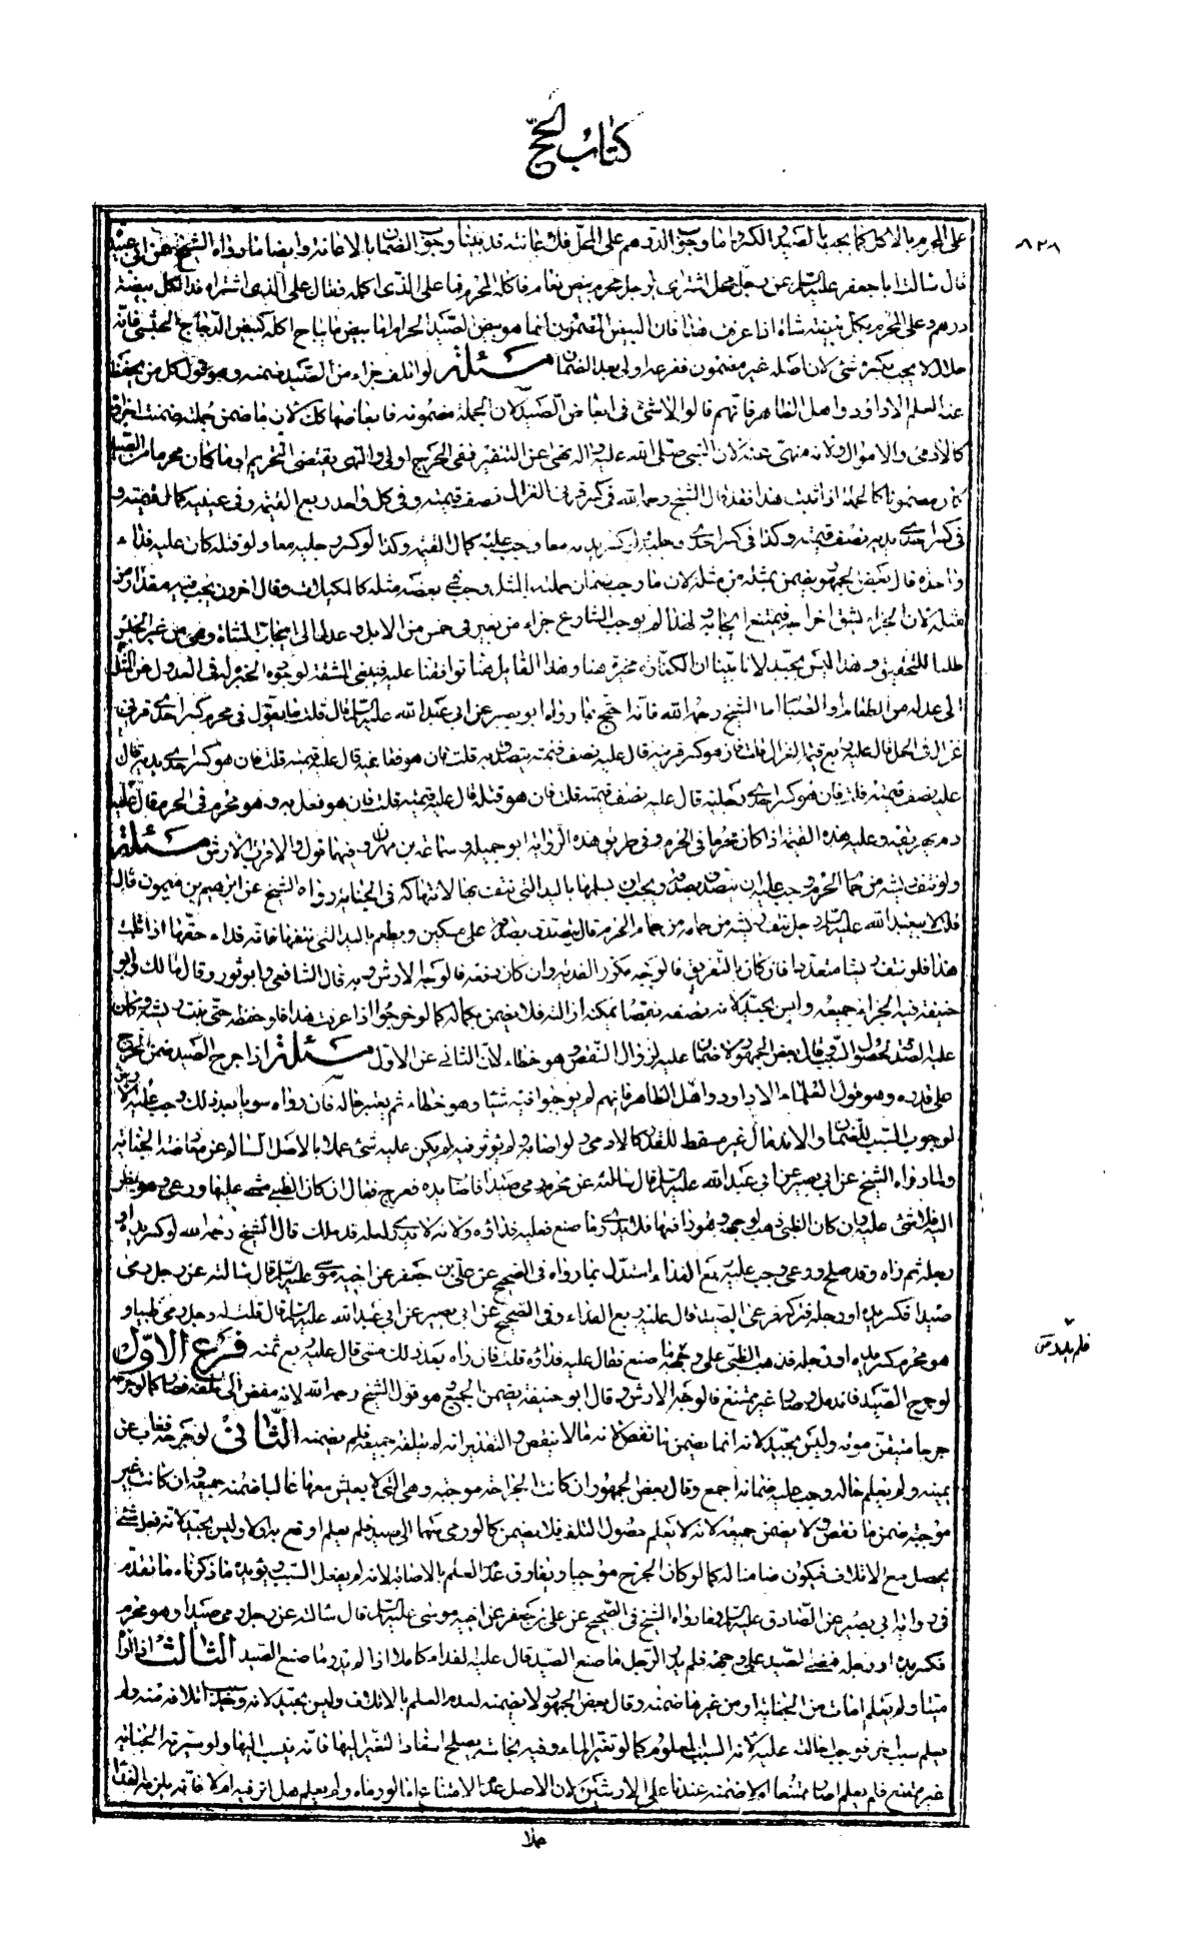 كتاب الحج
٨٢٨
على المحرم بالاكل كما يجب بالصيد الكفارة واما وجوب الدرهم على المحل فلاعانته قد بينا وجوب الضمان بالاعانة وايضا ما رواه الشيخ عن ابى عبيدة
قال سالت ابا جعفر عليه السلم عن رجل محل اشترى لرجل محرم بيض نعام فاكله المحرم فما على الذى اكله فقال على الذى اشتراه فداء لكل بيضة
درهم وعلى المحرم بكل بيضة شاة اذا عرفت هذا فان البيض المضمون انما هو بيض الصيد الحرام اما بيض ما يباح اكله كبيض الدجاج الحبشى فانه
حلال لا يجب بكسره شئ لان اصله غير مضمون ففرعه اولى بعدم الضمان مسئلة لو اتلف جزاء من الصيد ضمنه وهو قول كل من يحفظ
عنه العلم الا داود واهل الظاهر فانهم قالوا لا شئ فى ابعاض الصيد لان الجملة مضمونة فابعاضها كك لان ما ضمن جملته ضمنت اجزاؤه
كالادمى والاموال ولانه منهى عنه لان النبى صلى الله عليه واله نهى عن التنفير ففى الجرح اولى والنهى يقتضى التحريم وما كان محرما من الصيد
كان مضمونا كالجملة اذا ثبت هذا فقد قال الشيخ رحمه الله فى كسر قرنى الغزال نصف قيمته وفى كل واحد ربع القيمة وفى عينيه كمال قيمته و
فى كسر احدى يديه نصف قيمته وكذا فى كسر احدى رجليه ولو كسر يديه معا وجب عليه كمال القيمة وكذا لو كسر رجليه معا ولو قتله كان عليه فداء
واحد وقال بعض الجمهور يضمن بمثله من مثله لان ما وجب ضمان جملته بالمثل وجب فى بعضه مثله كالمكيلات وقال اخرون يجب قيمة مقداره من
مثله لان الجزاء يشق اخراجه فيمتنع ايجابه ولهذا لم يوجب الشارع جزاء من بعير فى خمس من الابل وعدل الى ايجاب الشاة وهى من غير الجنس
طلبا للتخفيف وهذا ليس بجيد لانا بينا ان الكفارة مخيرة هنا وهذا القايل هنا توافقنا عليه فينفى المشقة لوجود الخيرة له فى العدول عن المثل
الى عدله من الطعام او الصيام اما الشيخ رحمه الله فانه احتج بما رواه ابو بصير عن ابى عبد الله عليه السلم قال قلت ما يقول فى محرم كسر احدى قرنى
غزال فى الحل قال عليه ربع قيمة الغزال قلت فان هو كسر قرنيه قال عليه نصف قيمته يتصدق به قلت فان هو فقأ عينيه قال عليه قيمته قلت فان هو كسر احدى يديه قال
عليه نصف قيمته قلت فان هو كسر احدى رجليه قال عليه نصف قيمته قلت فان هو قتله قال عليه قيمته قلت فان هو فعل به وهو محرم فى الحرم قال عليه
دم يهريقه وعليه هذه القيمة اذا كان محرما فى الحرم وفى طريق هذه الرواية ابو جميلة وسماعة بن مهران وفيهما قول والاقرب الارش مسئلة
ولو نتف ريشة من حمام الحرم وجب عليه ان يتصدق بصدقة ويجب ان يسلمها باليد التى نتفت بها لانتهاكه فى الجناية رواه الشيخ عن ابرهيم بن ميمون قال
قلت لابى عبد الله عليه السلم رجل نتف ريشة من حمامة من حمام الحرم قال يتصدق بصدقة على مسكين ويطعم باليد التى نتفها فانه قد اوجعها اذا ثبت
هذا فلو نتف ريشا متعددا فان كان بالتفريق فالوجه تكرر الفدية وان كان دفعة فالوجه الارش وبه قال الشافعى وابو ثور وقال مالك وابو
حنيفة فيه الجزاء جميعه وليس بجيد لانه نقصه نقصا يمكن ازالته فلا يضمن بكماله كما لو جرحه اذا عرفت هذا فلو حفظه حتى نبت ريشه وكان
عليه الصدقة لحصول السبب وقال بعض الجمهور لا ضمان عليه لزوال النقص وهو خطاء لان الثانى غير الاول مسئلة اذا جرح الصيد ضمن الجرح
على قدره وهو قول العلماء الا داود واهل الظاهر فانهم لم يوجبوا فيه شيئا وهو خطاء ثم يعتبر حاله فان رواه سويا بعد ذلك وجب عليه الارش
لوجوب السبب للضمان والاندمال غير مسقط للفداء كالادمى ولو اصابه ولم يؤثر فيه لم يكن عليه شئ عملا بالاصل السالم عن معارضة الجناية
ولما رواه الشيخ عن ابى بصير عن ابى عبد الله عليه السلم قال سالته عن محرم رمى صيدا فاصاب يده فعرج فقال ان كان الظبى مشى عليها ورعى وهو ينظر
اليه فلا شئ عليه وان كان الظبى ذهب لوجهه وهو رافعها فلا يدرى ما صنع فعليه فداؤه ولانه لا يدرى لعله قد هلك قال الشيخ رحمه الله لو كسر يده او
رجله ثم راه وقد صلح ورعى وجب عليه ربع الفداء استدل بما رواه فى الصحيح عن على بن جعفر عن اخيه موسى عليه السلم قال سالته عن رجل رمى
صيدا فكسر يده او رجله وتركه فرعى الصيد قال عليه ربع الفداء وفى الصحيح عن ابى بصير عن ابى عبد الله عليه السلم قال قلت له رجل رمى ظبيا و
هو محرم كسر يده او رجله فذهب الظبى على وجهه فلم يدر ما صنع فقال عليه فداؤه قلت فان راه بعد ذلك مشى قال عليه ربع ثمنه فرع الاول
لو جرح الصيد فاندمل وصار غير ممتنع فالوجه الارش وقال ابو حنيفة يضمن الجميع وهو قول الشيخ رحمه الله لانه مفض الى تلفه فصار كما لو جرحه
جرحا متيقن موته وليس بجيد لانه انما يضمن ما نقص لانه ما لا ينقص والتقدير انه لم يتلفه جميعه فلم يضمنه الثانى لو جرحه فغاب عن
عينه ولم يعلم حاله وجب عليه ضمانه اجمع وقال بعض الجمهور ان كانت الجراحة موجبة وهى التى لا يعيش معها غالبا ضمنه جميعه وان كانت غير
موجبة ضمن ما نقص ولا يضمن جميعه لانه لا يعلم حصول التلف فلا يضمن كما لو رمى سهما الى صيد فلم يعلم اوقع به ام لا وليس بجيد لانه فعل شئ
يحصل مع الاتلاف فيكون ضامنا له كما لو كان الجرح موجبا ويفارق عدم العلم بالاصابة لانه لم يفعل السبب ويؤيده ما ذكرناه ما تقدم
فى رواية ابى بصير عن الصادق عليه السلم وما رواه الشيخ فى الصحيح عن على بن جعفر عن اخيه موسى عليه السلم قال سالته عن رجل رمى صيدا وهو محرم
فكسر يده او رجله فمضى الصيد على وجهه فلم يدر الرجل ما صنع الصيد قال عليه الفداء كاملا اذا لم يدر ما صنع الصيد الثالث اذا راه
ميتا ولم يعلم امات من الجناية او من غيرها ضمنه وقال بعض الجمهور لا يضمنه لعدم العلم بالاتلاف وليس بجيد لانه وجد سبب اتلافه منه ولم
يعلم سبب اخر فوجب احالته عليه لانه السبب المعلوم كما لو تغير الماء وفيه نجاسة يصلح استناد التغير اليها فانه ينسب اليها ولو صيرته الجناية
غير ممتنع فلم يعلم اصار ممتنعا ام لا ضمنه عندنا على الارش لان الاصل عدم الامتناع اما لو رماه ولم يعلم هل اثر فيه ام لا فانه يلزمه الفداء
فلم يدر ص
حملا